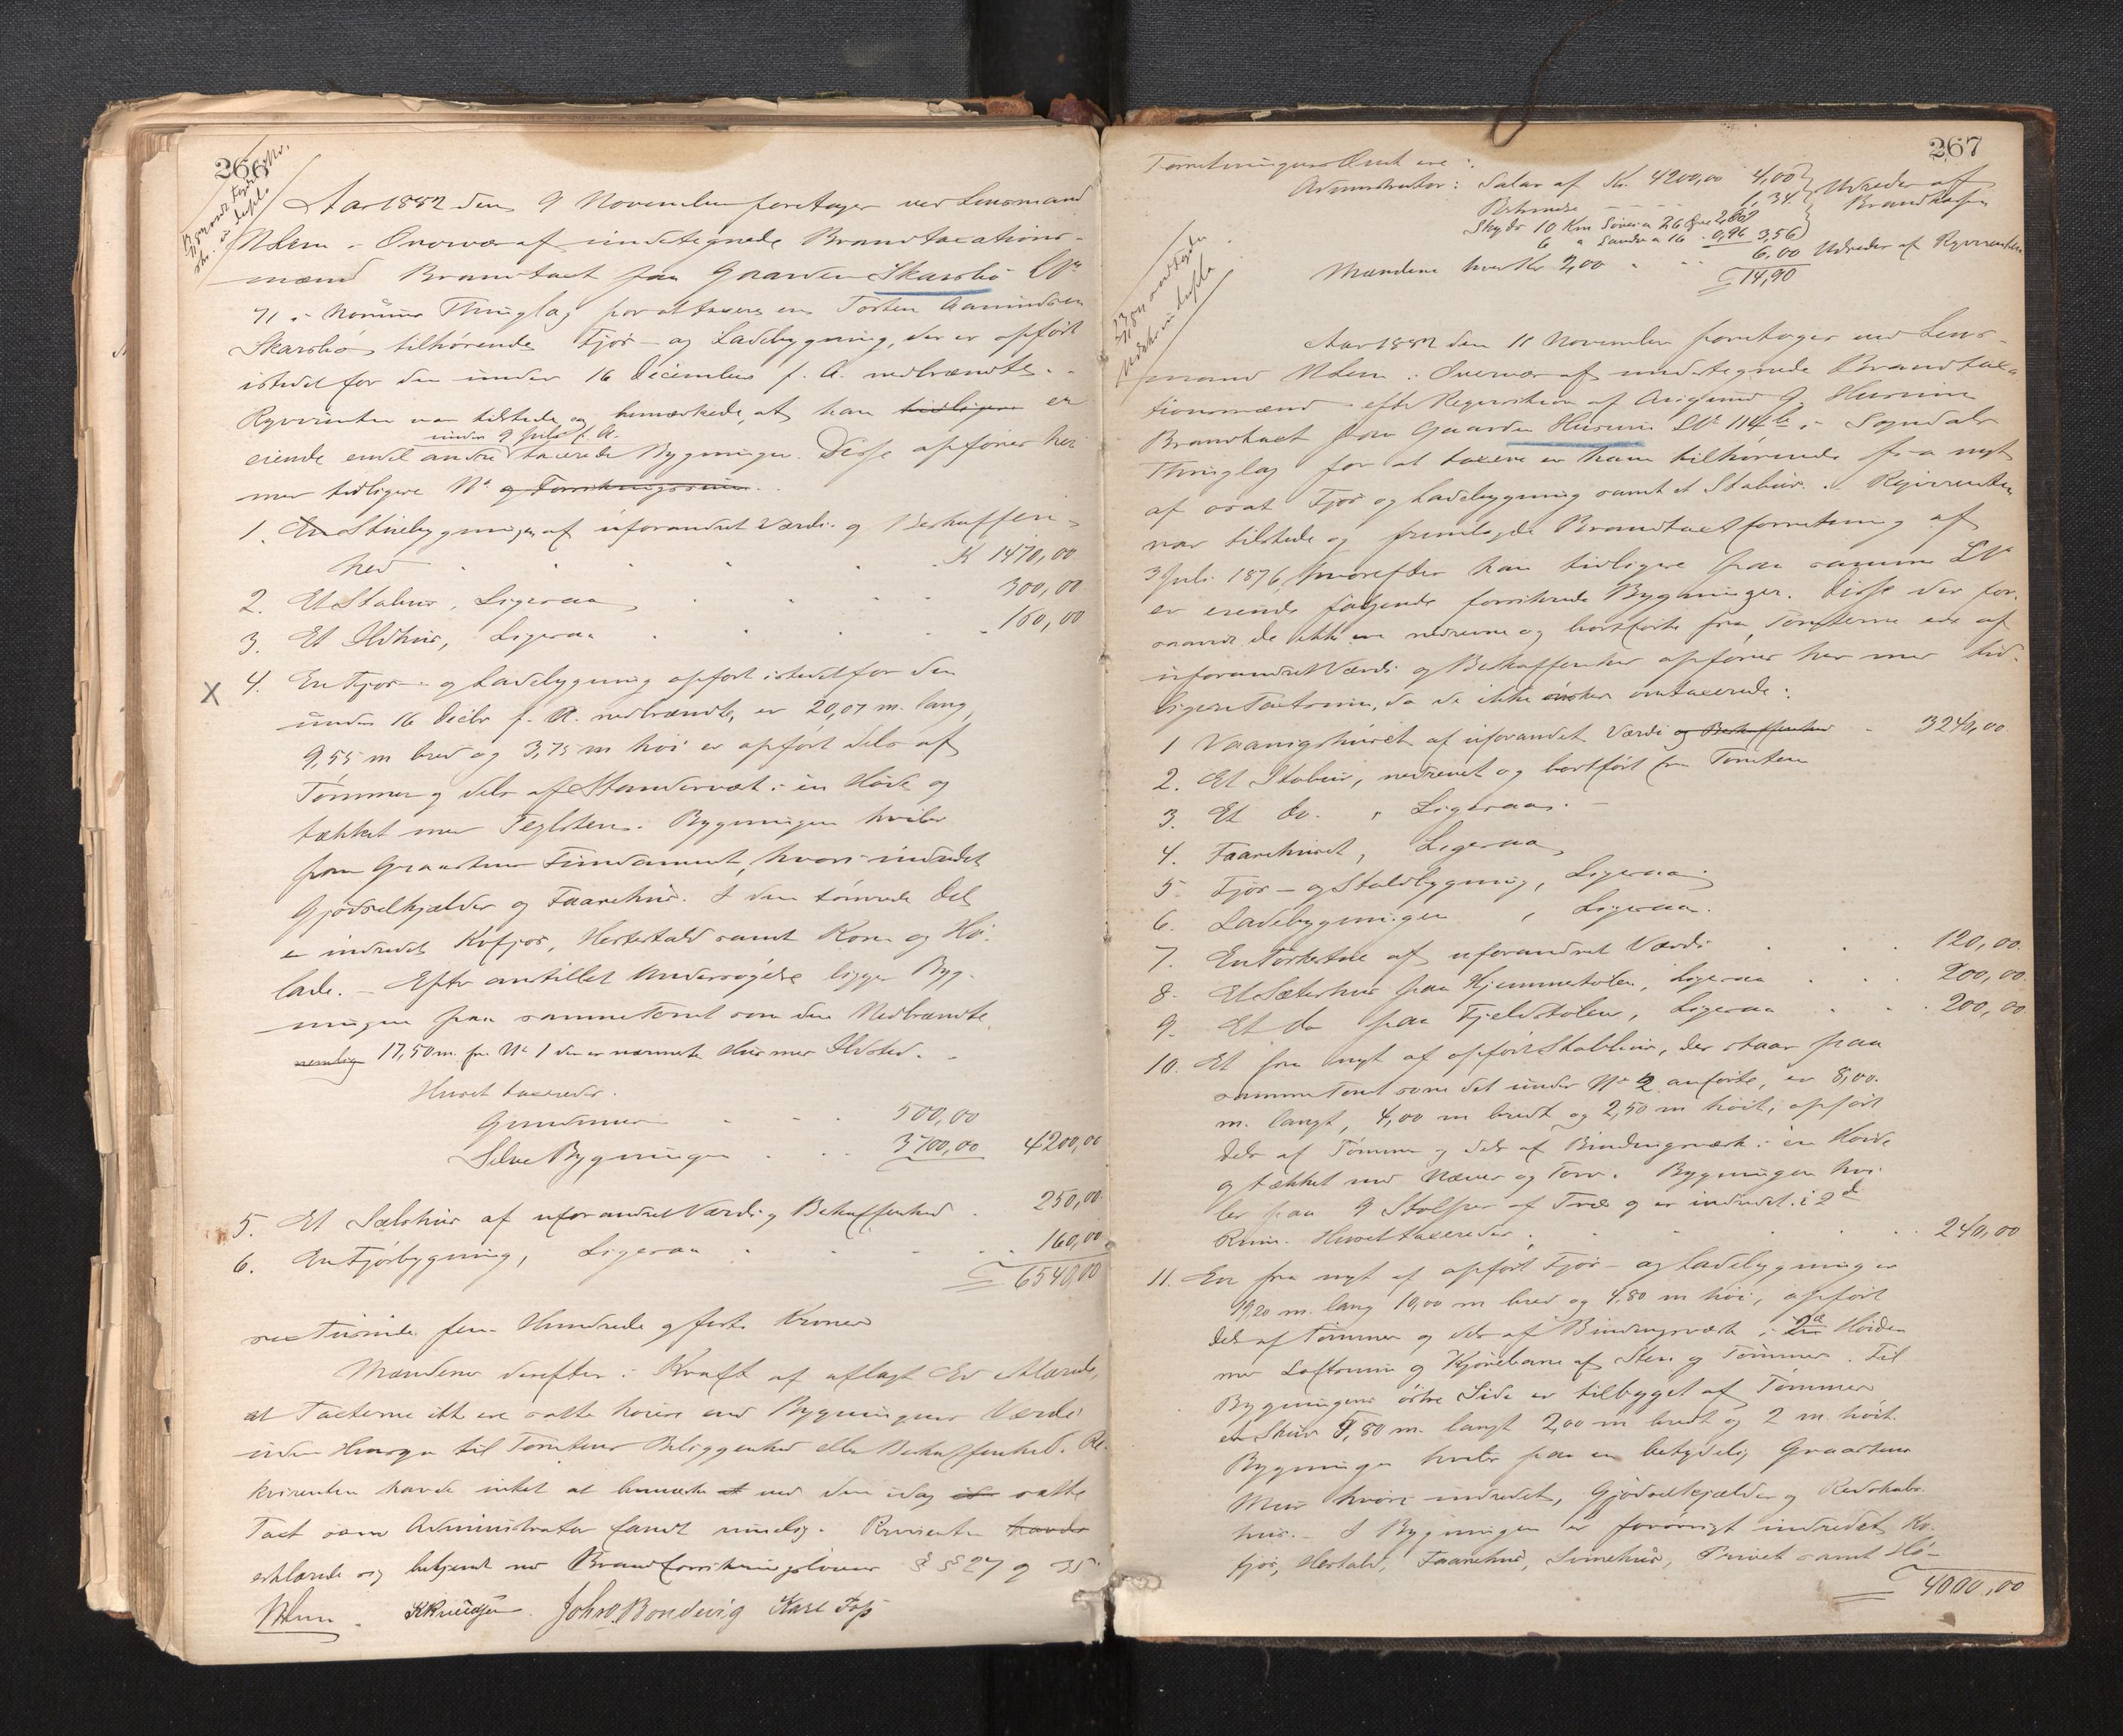 266
Aar 1882 den 9 November foretages ved Lensmand
N Lem i Overvær af undertegnede Brandtaxations-
mænd Brandtaxt paa Gaarden Skarsbø LN
71 i Norums Thinglag for at taxere en Torsten Aamundsen
Skarsbø tilhørende Fjøs- og Ladebygning, der er opført
istedetfor den under 16 December f. A. nedbrændte.
Rqvirenten var tilstede og bemærkede, at han tidligere er
under 9 Juli f. A.
eiende endel andre taxerede Bygninger. Disse opføres her
med tidligere No og Forsikringssum.
1. En Stuebygning af uforandret Værdi og Beskaffen-
hed K 1470,00
2. Et Stabur, Ligesaa 300,00
3. Et Ildhus, Ligesaa 160,00
X 4. En Fjøs- og Ladebygning opført istedetfor den
under 16 Decbr f. A. nedbrændte, er 20,07 m. lang,
9,55 m bred og 3,75 m høi er opført dels af
Tømmer og dels af Standervæk i en Høide og
tækket med Teglsten. Bygningen hviler
paa Graastens Fundament, hvori indredet
Gjødselkjælder og Faarehus. I den tømrede Del
er indredet Kofjøs, Hestestald samt Korn og Hø-
lade. - Efter anstillet Undersøgelse ligger Byg-
ningen paa samme Tomt som den Nedbrændte,
nemlig 17,50 m. fra No 1 der er nærmeste Hus med Ildsted. -
Huset taxeredes.
Grundmur 500,00
Selve Bygningen 3700,00 4200,00
5. Et Sælshus af uforandret Værdi og Beskaffenhed 250,00
6. En Fjøsbygning, Ligesaa 160,00
6540,00
sex Tusinde fem Hundrede og førti Kroner
Mændene derefter i Kraft af aflagt Ed erklærede,
at Taxterne ikke ere satte høiere end Bygningens Værdi
uden Hensyn til Tomtens Beliggenhed eller Beskaffenhed. Re-
kvirenten havde intet at bemærke at ved den idag satte
Taxt som Administrator fandt rimelig. Rqvirenten havde
erklærede sig bekjendt med Brandforsikringslovens §§ 27 og 35
NLem KKnudsen. John O. Bondevig Karl Foss
267
Forretningens Omk ere:
Administrator: Salær af Kr. 4200,00 4,00
1,34
Skyds 10 Km Søvei a 26 Øre 2,60
6 a Landv a 16 0,96 3,56
Udredes af
Brandkassen
Mændene hver Kr 2,00 6,00 Udredes af Rqvirenten
14,90
Aar 1882 den 11 November foretages ved Lens-
mand N Lem i Overvær af undertegnede Brandtaxa-
tionsmænd efter Reqvisition af Husum
Brandtaxt paa Gaarden Husum LN 114 b i Sogndals
Thinglag for at taxere en ham tilhørende fra nyt
af opsat Fjøs og Ladebygning samt et Stabur. Reqvirenten
var tilstede og fremlagde Brandtaxtforretning af
3 Juli 1876, hvorefter han tidligere paa samme LN
er eiende følgende forsikrede Bygninger. Disse der for-
saavidt de ikke ere nedrevne og bortførte fra Tomterne ere af
uforandret Værdi og Beskaffenhed opføres her med tid-
ligere Taxtsum, da de ikke ønskes omtaxerede:
1 Vaaningshuset af uforandret Værdi og Beskaffenhed 3240,00
2. Et Stabur, nedrevet og bortført fra Tomten
3. Et do. " Ligesaa. -
4. Faarehuset, Ligesaa
5 Fjøs- og Staldbygning, Ligesaa
6. Ladebygningen, Ligesaa.
7. En Tørkestue af uforandret Værdi 120,00.
8. Et Sæterhus paa Hjemmestølen, Ligesaa 200,00
9. Et do paa Fjeldstølen, Ligesaa 200,00
10. Et fra nyt af opført Stabbur, der staar paa
samme Tomt som det under No 2 anførte, er 8,00.
m. langt, 4,00 m bredt og 2,50 m høit, opført
dels af Tømmer og dels af Bindingsværk i en Høide
og tækket med Næver og Torv. Bygningen hvi-
ler paa 9 Stolper af Træ og er indredet i 2de
Rum. Huset taxeredes 240,00
11. En fra nyt af opført Fjøs- og Ladebygning er
19,20 m. lang 10,00 m bred og 4,80 m høi, opført
dels af Tømmer og dels af Bindingsværk i 2de Høider
med Loftsrum og Kjørebane af Sten og Tømmer. Til
Bygningens østre Side er tilbygget af Tømmer
et Skur 9,80 m. langt 2,00 m bredt og 2 m. høit.
Bygningen hviler paa en betydelig Graastens
Mur hvori indredet, Gjødselkjælder og Redskabs-
hus. - I Bygningen er forøvrigt indredet Ko-
fjøs, Hestald, Faarehus, Svinehus, Privet samt Hø-
4000,00